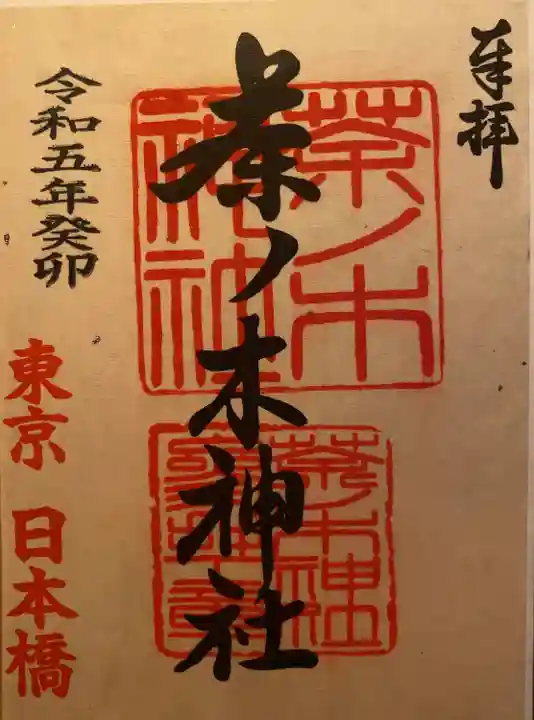 奉拝
茶ノ木神社
茶ノ木
神社
茶ノ木神社
令和五年癸卯
東京 日本橋